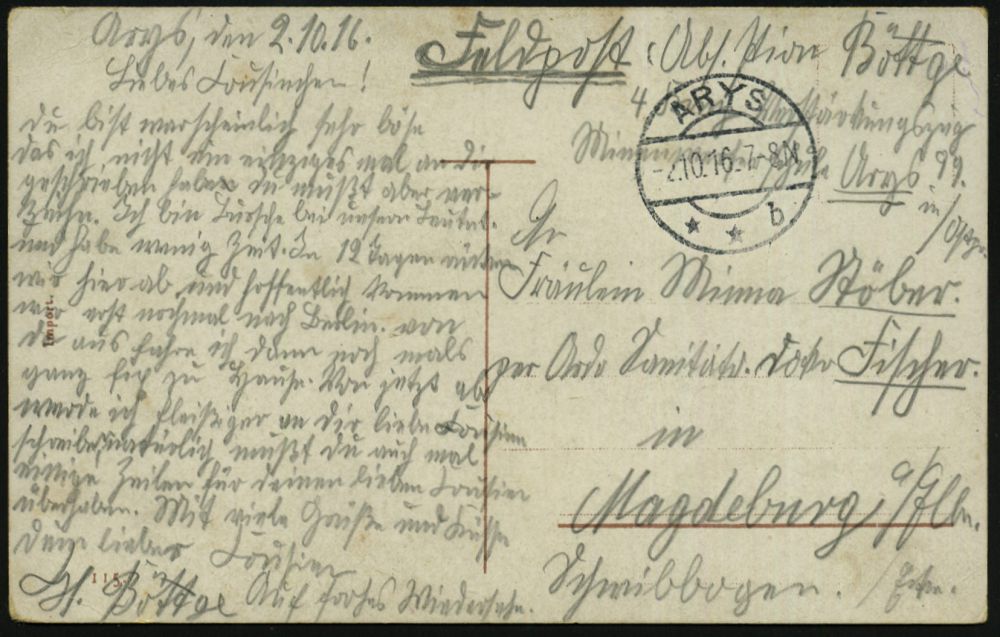 Arys, den 2.10.16.
Liebes Cousinchen!
du bist warscheinlich sehr böse
das ich nicht ein einziges mal an dir
geschrieben habe du mußt aber ver-
zeihn. Ich bin Bursche bei unsern Leutnt.
und habe wenig Zeit. In 12 Tagen rücken
wir hier ab und hoffentlich kommen
wir erst nochmal nach Berlin. von
da aus fahre ich dann noch mals
ganz fix zu Hause. Von jetzt ab
werde ich fleißiger an dir liebe Cousine
schreiben, natürlich mußt du auch mal
einige Zeilen für deinen lieben Cousien
überhaben. Mit viele Grüße und Küsse
dein lieber Cousien
H. Böttge Auf frohes Wiedersehn.
Feldpost
Abs. Pion Böttge
4
Verstärkungszug
Arys
in
ARYS
-2.10.16.7-8N
* * b
Fräulein Minna Stöber.
per Sanitäts. Fischer.
in
Magdeburg a/Elbe.
Schwibbogen. Ecke.
Import.
115